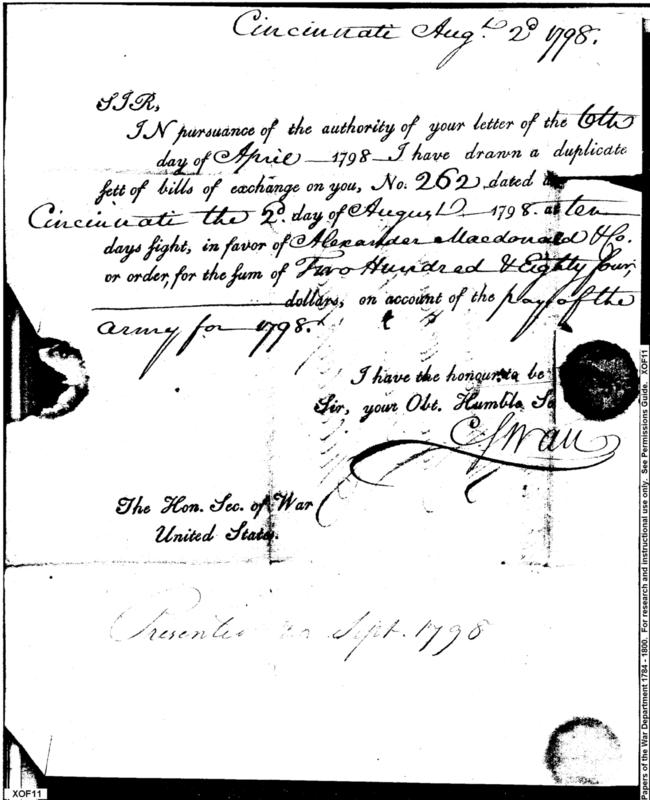 Cincinnati Augt. 2d 1798.
SIR,
IN pursuance of the authority of your letter of the 6th
day of April 1798 I have drawn a duplicate
sett of bills of exchange on you, No. 262 dated
Cincinnati the 2d. day of August 1798. at ten
days sight, in favor of Alexander Macdonald & Co.
or order, for the sum of Two Hundred & Eighty four
dollars, on account of the pay of the
army for 1798.
I have the honour to be
Sir, your Obt. Humble Se
C Swan
The Hon. Sec. of War
United States.
Presented Sept. 1798
XOF11
Papers of the War Department 1784 - 1800. For research and instructional use only. See Permissions Guide. XOF11